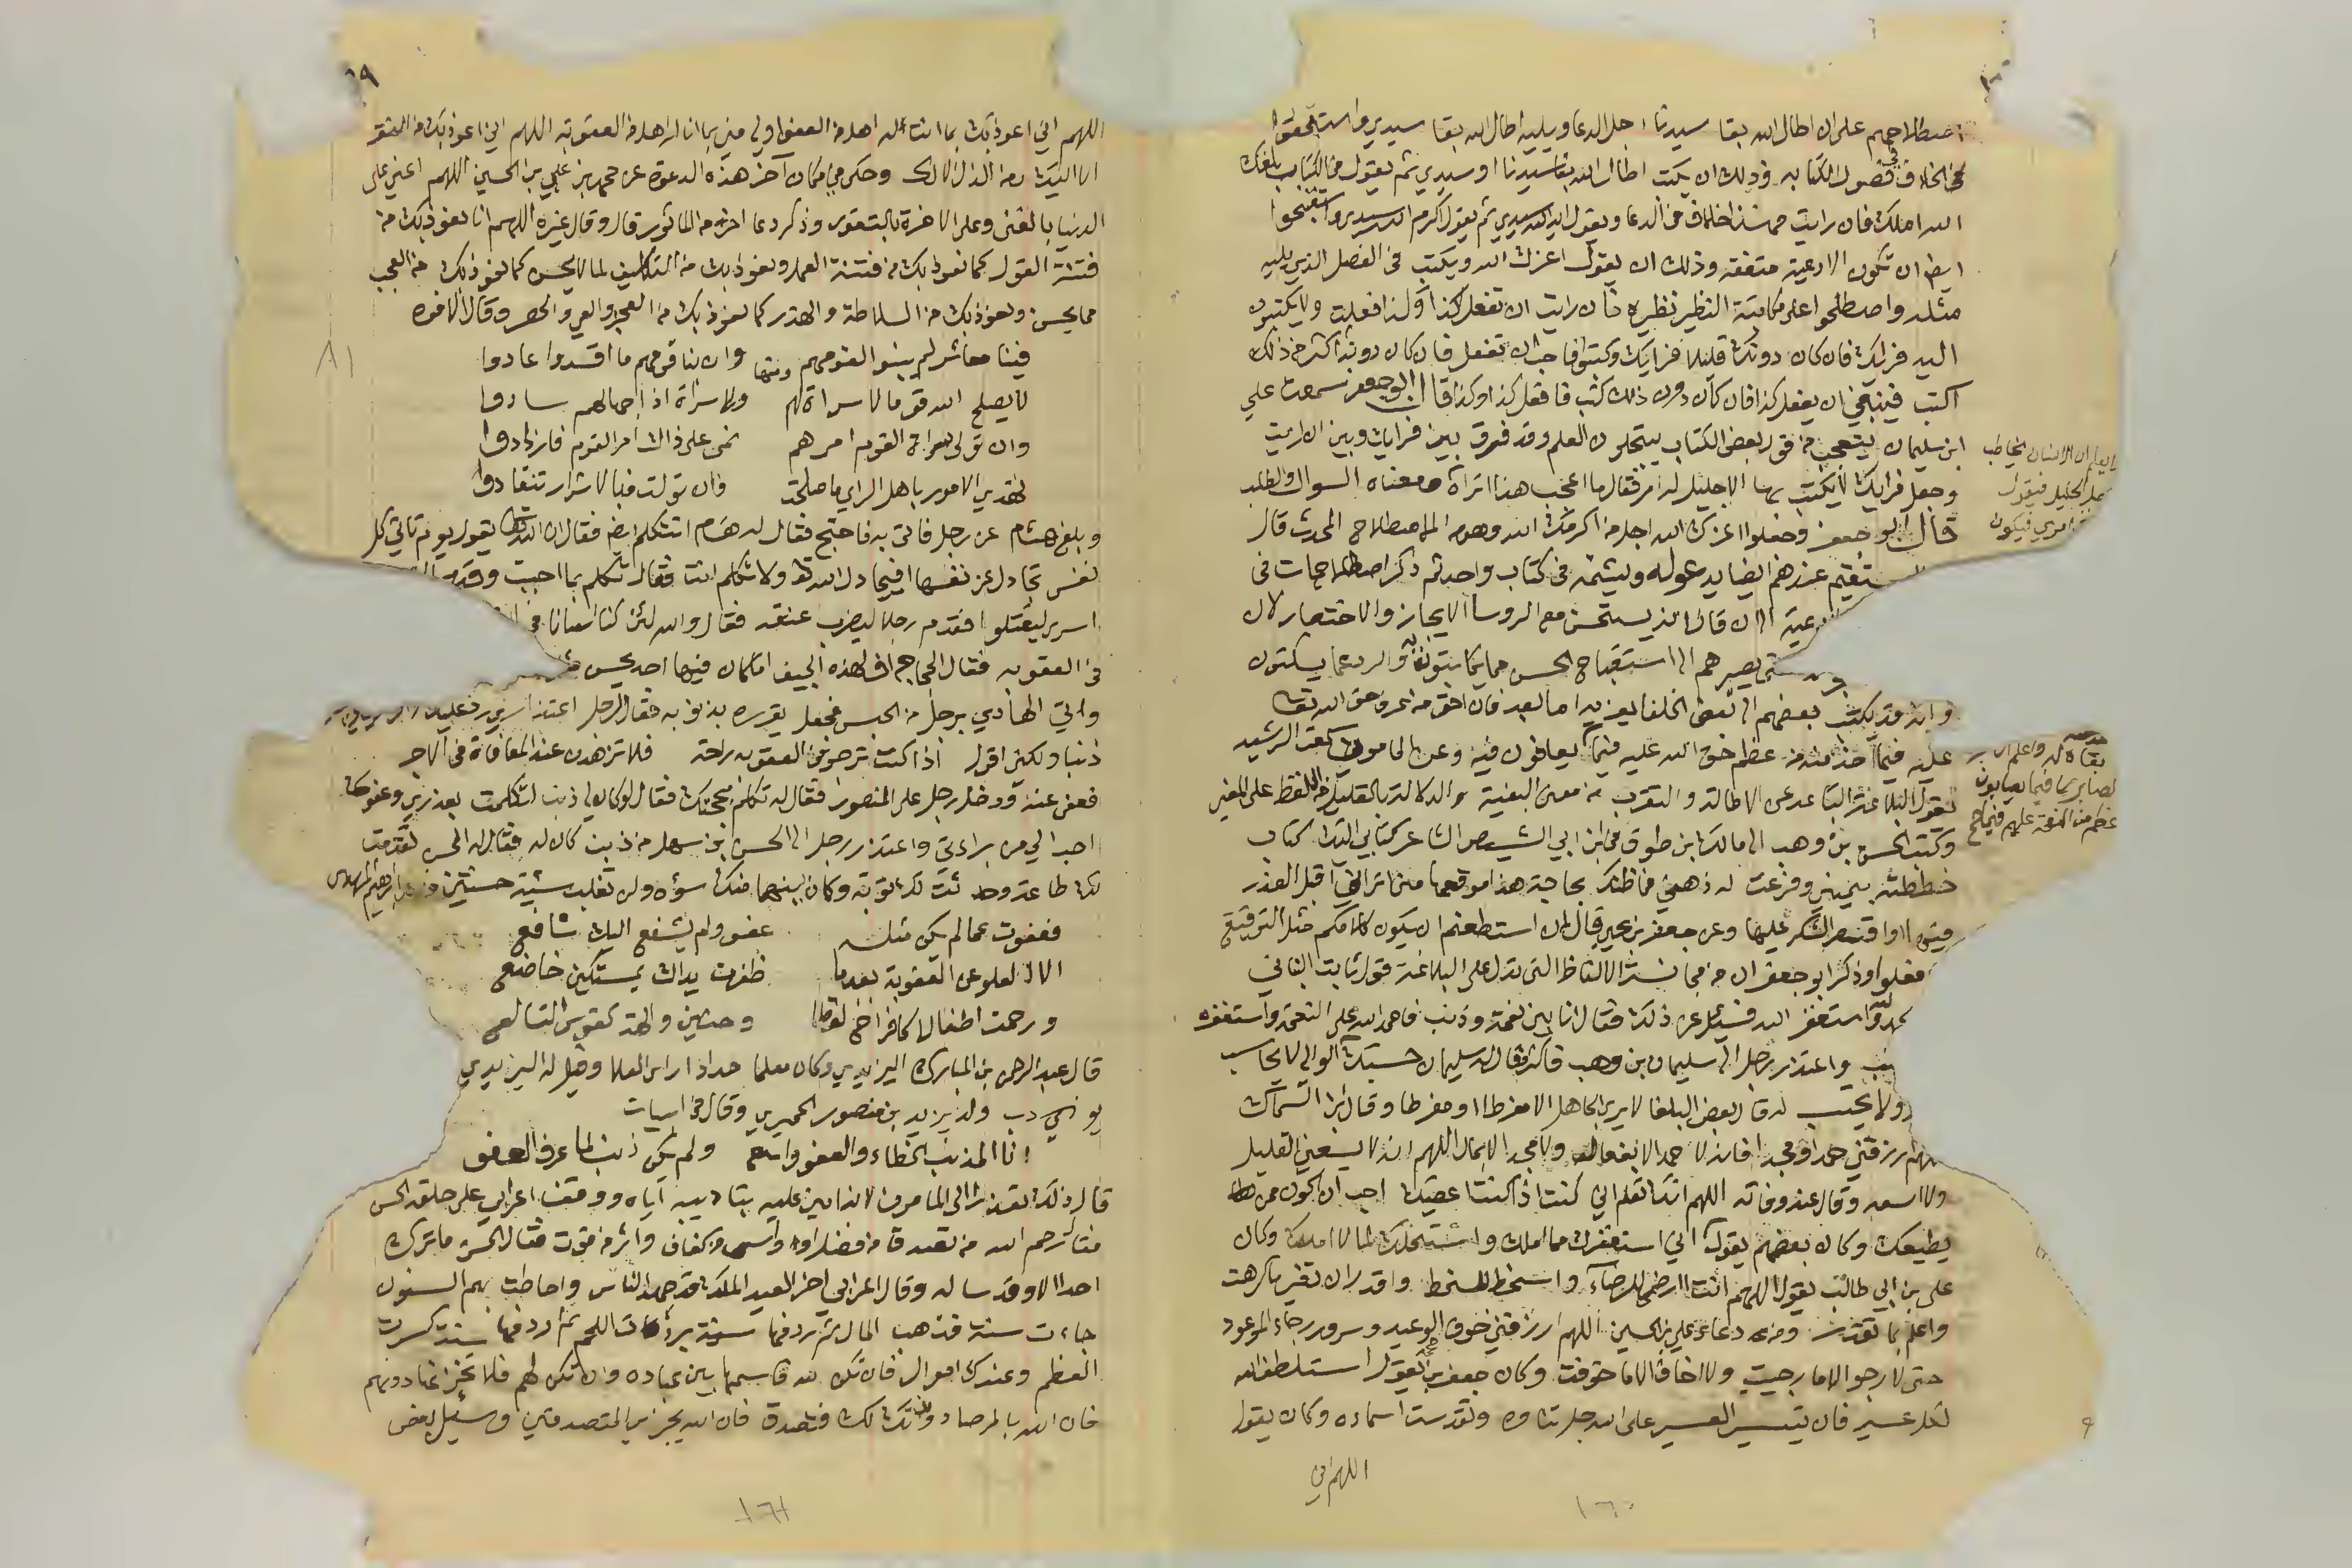 اصطلاحهم على ان اطال الله بقا سيدنا اجل الدعا ويليه اطال الله بقا سيدي واستقبحوا
الخلاف في فصول الكتابه وذلك ان يكتب اطال الله بقا سيدنا او سيدي ثم يقول في الكتاب بلغك
الله املك فان رايت فهذا خلاف في الدعا ويقول ايد الله سيدي ثم يقول اكرم الله سيدي واستقبحوا
ايضا ان تكون الادعية متفقه وذلك ان يقول اعزك الله ويكتب في الفصل الذي يليه
مثله واصطلحوا على مكاتبة النظير نظيره فان رايت ان تفعل كذا وكذا فعلت ولا يكتبون
اليه فرايك فان كان دونك قليلا فرايك وكتبوا فاحب ان تفعل فان كان دونه اكثر من ذلك
اكتب فينبغي ان يفعل كذا فان كان دون ذلك كتب فافعل كذا وكذا قال ابو جعفر سمعت علي
ابن سليمان يتعجب من قول بعض الكتاب ينتحلون العلم وقد فرق بين فرايك وبين ان رايت
وجعل فرايك لا يكتب بها الا جليل لانه امر فقال ما اعجب هذا اتراه ومعناه السوال والطلب
يا
قال ابو جعفر وجعلوا اعزك الله اجل من اكرمك الله وهو من الاصطلاح المحدث قال
ويستقيم عندهم ايضا يدعو له ويشتمه في كتاب واحد ثم ذكر اصطلاحات في
الا ان قال الذي يستحسن مع الروسا الايجاز والاختصار لان
يصيرهم الى استقباح الحسن مما يكاتبون به والرد عما يسئلون
وانه قد يكتب بعضهم الى بعض الخلفا يعزيه اما بعد فان احق من عرف حق الله تعا
عليه فيما اخذ منه من عظم حق الله عليه فيما يعافون فيه وعن المامون سمعت الرشيد
يقول البلاغة التباعد عن الاطالة والتقرب من معنى البغية والدلالة بالقليل من اللفظ على المعنى
وكتب الحسن بن وهب الى مالك بن طوق في ابن ابي الشيص الشاعر كتابي اليك كتاب
خططته بيميني وفرغت له ذهني فما ظنك بحاجة هذا موقعها مني اتراني اقبل العذر
فيها او اقصر الشكر عليها وعن جعفر بن يحيى قال ان استطعتم ان يكون كلامكم مثل التوقيع
فافعلوا وذكر ابو جعفر ان من مجانسة الالفاظ التي تدل على البلاغة قول ثابت البناني
الحمد لله واستغفر الله فسئل عن ذلك فقال انا بين نعمة وذنب فاحمد الله على النعمة واستغفره
واعتذر رجل الى سليمان بن وهب فاكثر فقال له سليمان حسبك فان الولي لا يحاسب
ولا يحتسب له وقال بعض البلغا لا يرى الجاهل الا مفرطا او مفرطا وقال ابن السماك
اللهم ارزقني حمدا ومجدا فانه لا حمد الا بفعال ولا مجد الا بمال اللهم انه لا يسعني القليل
ولا اسعه وقال عند وفاته اللهم انك تعلم اني كنت اذ كنت اعصيك احب ان اكون ممن
يطيعك وكان بعضهم يقول اني استغفرك مما املك واستحلك لما لا املك وكان
على بن ابي طالب يقول اللهم انت ارضى للرضاء واسخط للسخط واقدر ان تغير ما كرهت
واعلم بما تقدر ومن دعاء علي بن الحسين اللهم ارزقني خوف الوعيد وسرور رجاء الموعود
حتى لا ارجو الا ما رجيت ولا اخاف الا ما خوفت وكان جعفر بن يقول استلطف الله
لكل عسير فان تيسير العسير على الله جل ثناوه وتقدست اسماوه وكان يقول
اللهم اني
١٦٠
اللهم اني اعوذ بك بما انت له اهل من العفو اولى مني بما انا له اهل من العقوبة اللهم اني اعوذ بك من الفقر
الا اليك ومن الذل الا لك وحكى في مكان آخر هذه الدعوة عن محمد بن علي بن الحسين اللهم اعني على
الدنيا بالغنى وعلى الاخرة بالتقوى وذكر دعا اخر من الماثور قال وقال غيره اللهم انا نعوذ بك من
فتنة القول كما نعوذ بك من فتنة العمل ونعوذ بك من التكلف لما لا يحسن كما نعوذ بك من العجب
مما يحسن ونعوذ بك من السلاطة والهذر كما نعوذ بك من العي والحصر وقال الافوه
فينا معاشر لم يبنوا لقومهم وان بنا قومهم ما افسدوا عادوا
لا يصلح الله قوما لا سراة لهم ولا سراة اذا جهالهم سادوا
وان تولى سراة القوم امرهم نمى على ذاك امر القوم فازدادوا
تهدي الامور باهل الراي ما صلحت فان تولت فبالاشرار تنقادوا
وبلغ هشام عن رجل فاتى به فاحتج فقال له هشام اتتكلم ايضا فقال ان الله تعالى يقول يوم تاتي كل
نفس تجادل عن نفسها افيجادل الله تعا ولا تتكلم انت فقال تكلم بما احببت وقدم
اسرى ليقتلوا فقدم رجلا ليضرب عنقه فقال والله لئن كنا اسانا في
في العقوبه فقال الحجاج اف لهذه الجيف اما كان فيها احد يحسن
واتي الهادي برجل من الحبس فجعل يقرره بذنوبه فقال الرجل اعتذاري رد عليك
ذنبا ولكني اقول اذا كنت ترجو في العقوبه راحة فلا تزهدن عند المعافاة في الاجر
فعفى عنه ودخل رجل على المنصور فقال له تكلم بحجتك فقال لو كان لي ذنب لتكلمت بعذري وعفوك
احب الي من براءتي واعتذر رجل الى الحسن بن سهل من ذنب كان له فقال له الحسن تقدمت
لك طاعة وحدثت لك توبة وكان بينهما منك سوه ولن تغلب سيئة حسنتين
فعفوت عمن لم يكن مثله عفو ولم يشفع اليك شافع
الا العلو عن العقوبة بعدما ظفرت يداك بمستكين خاضع
ورحمت اطفالا كافراخ القطا وحنين والهة كقوس النازع
قال عبد الرحمن بن المبارك اليزيدي وكان معلما حذا دار ابي العلا وقيل له اليزيدي
يودب ولد يزيد بن منصور الحميري وقال في ابيات
انا المذنب الخطاء والعفو واسع ولم يكن ذنب لما عرف العفو
قال ذلك تعذرا الى المامون لانه امتن عليه بتاديبه اياه ووقف اعرابي على حلقة الحسن
فقال رحم الله من تصدق من فضل او واسى من كفاف واثر من قوت فقال الحسن ما ترك
احدا الا وقد ساله وقال اعرابي اخر قد جهد الناس واحاطت بهم السنون
جاءت سنة فذهب المال ثم ردفها سنة برت اللحم ثم ردفها سنة كسرت
العظم وعندك اموال فان تكن لله فاسمها بين عباده وان تكن لهم فلا تخزنها دونهم
فان الله بالمرصاد وان تك لك فتصدق فان الله يجزي المتصدقين وسئل بعض
١٦١